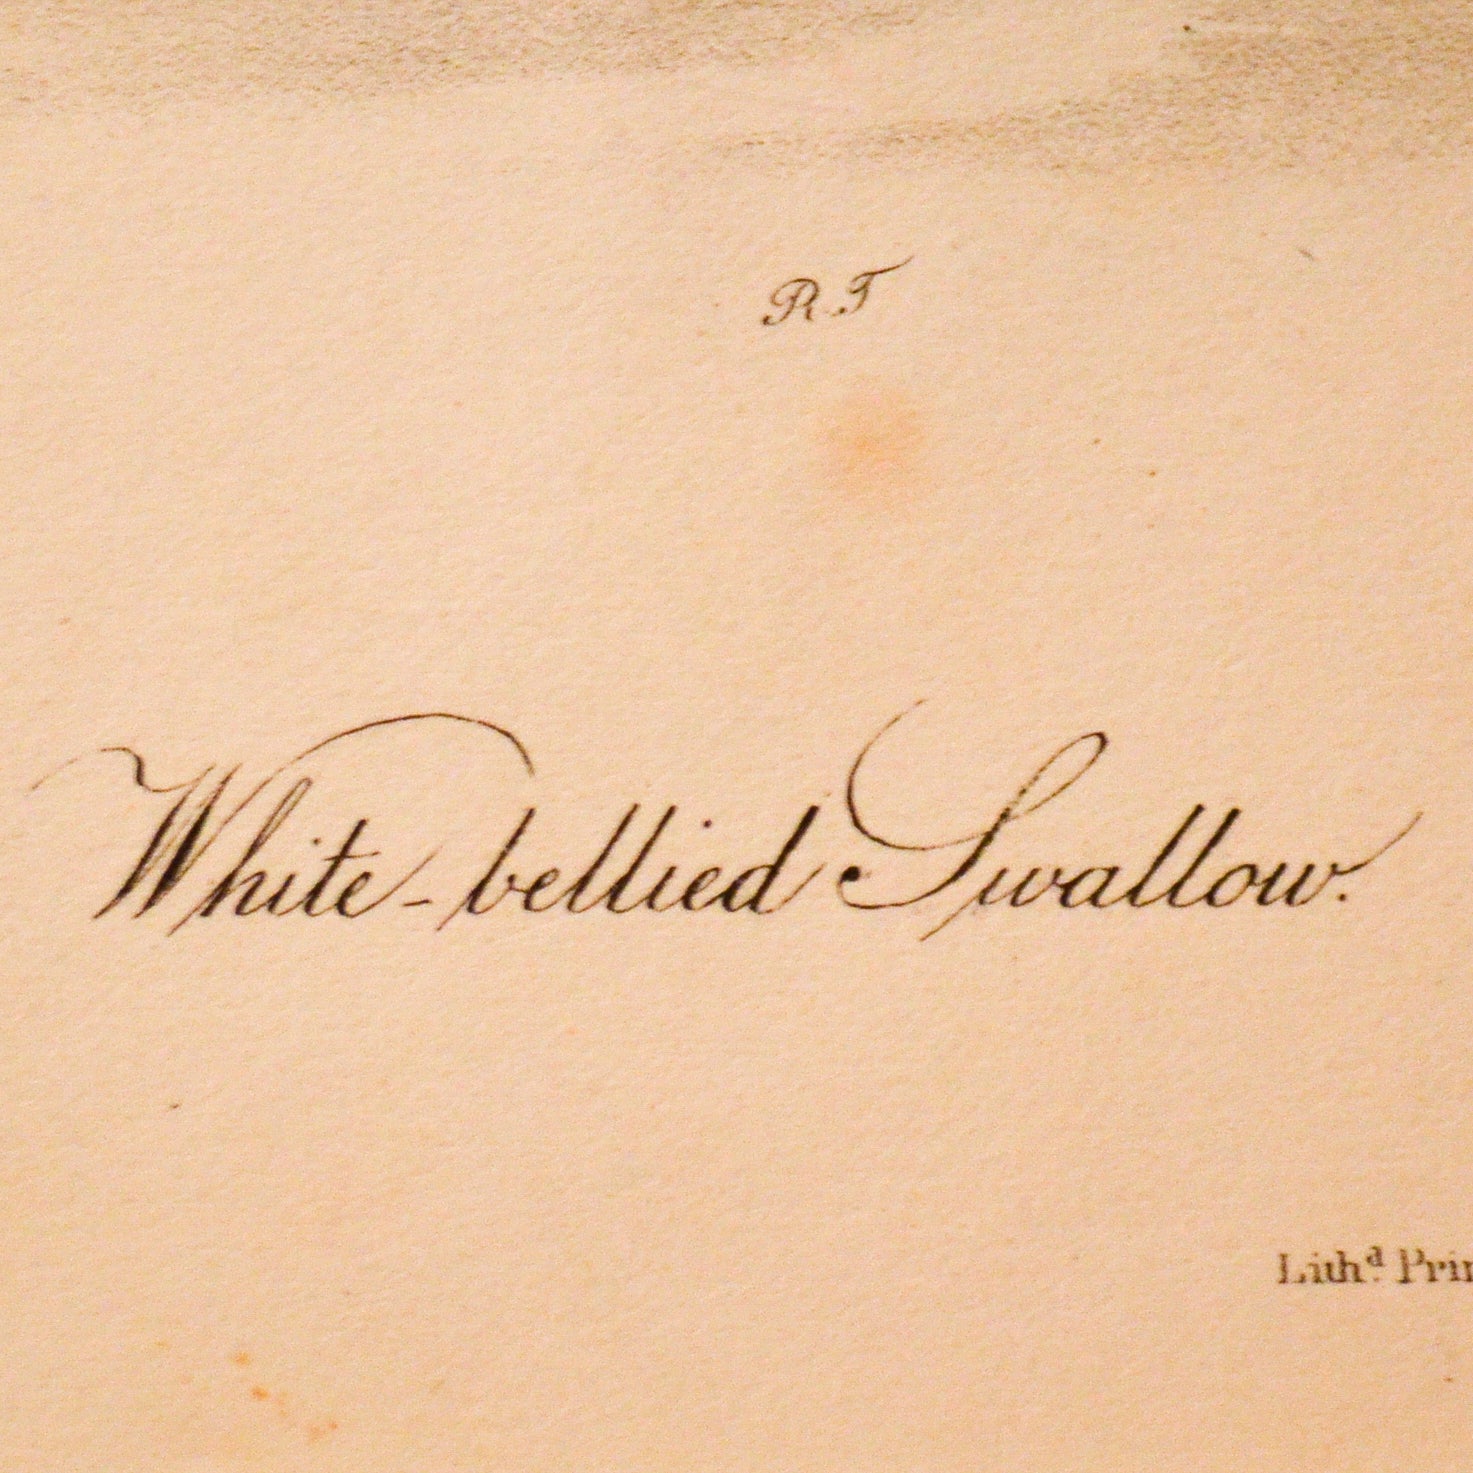 R. T
White-bellied Swallow.
Lith.d